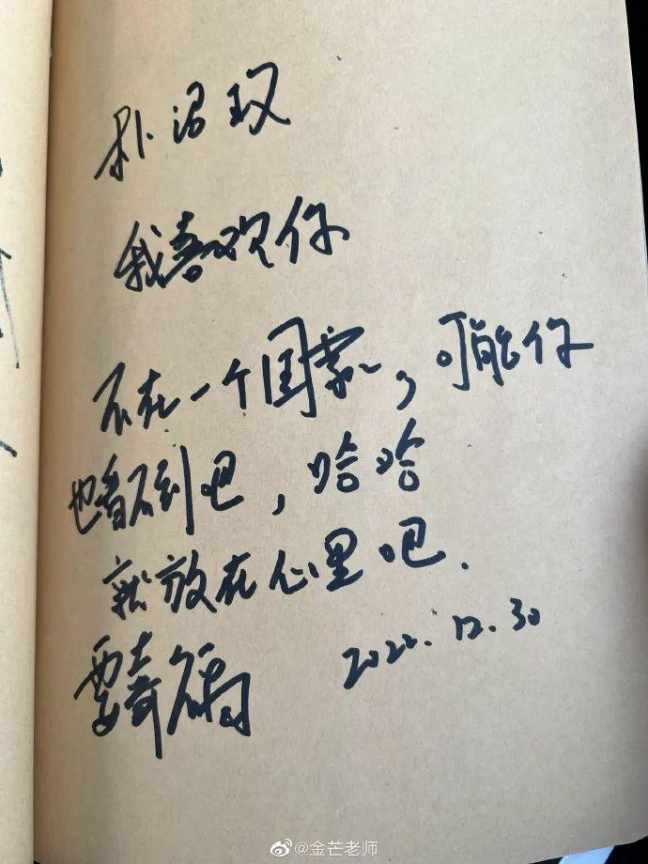 朴
我喜欢你
不在一个国家，可能你
也看不到吧，哈哈
就放在心里吧.
要幸福
2022.12.30
@金芒老师